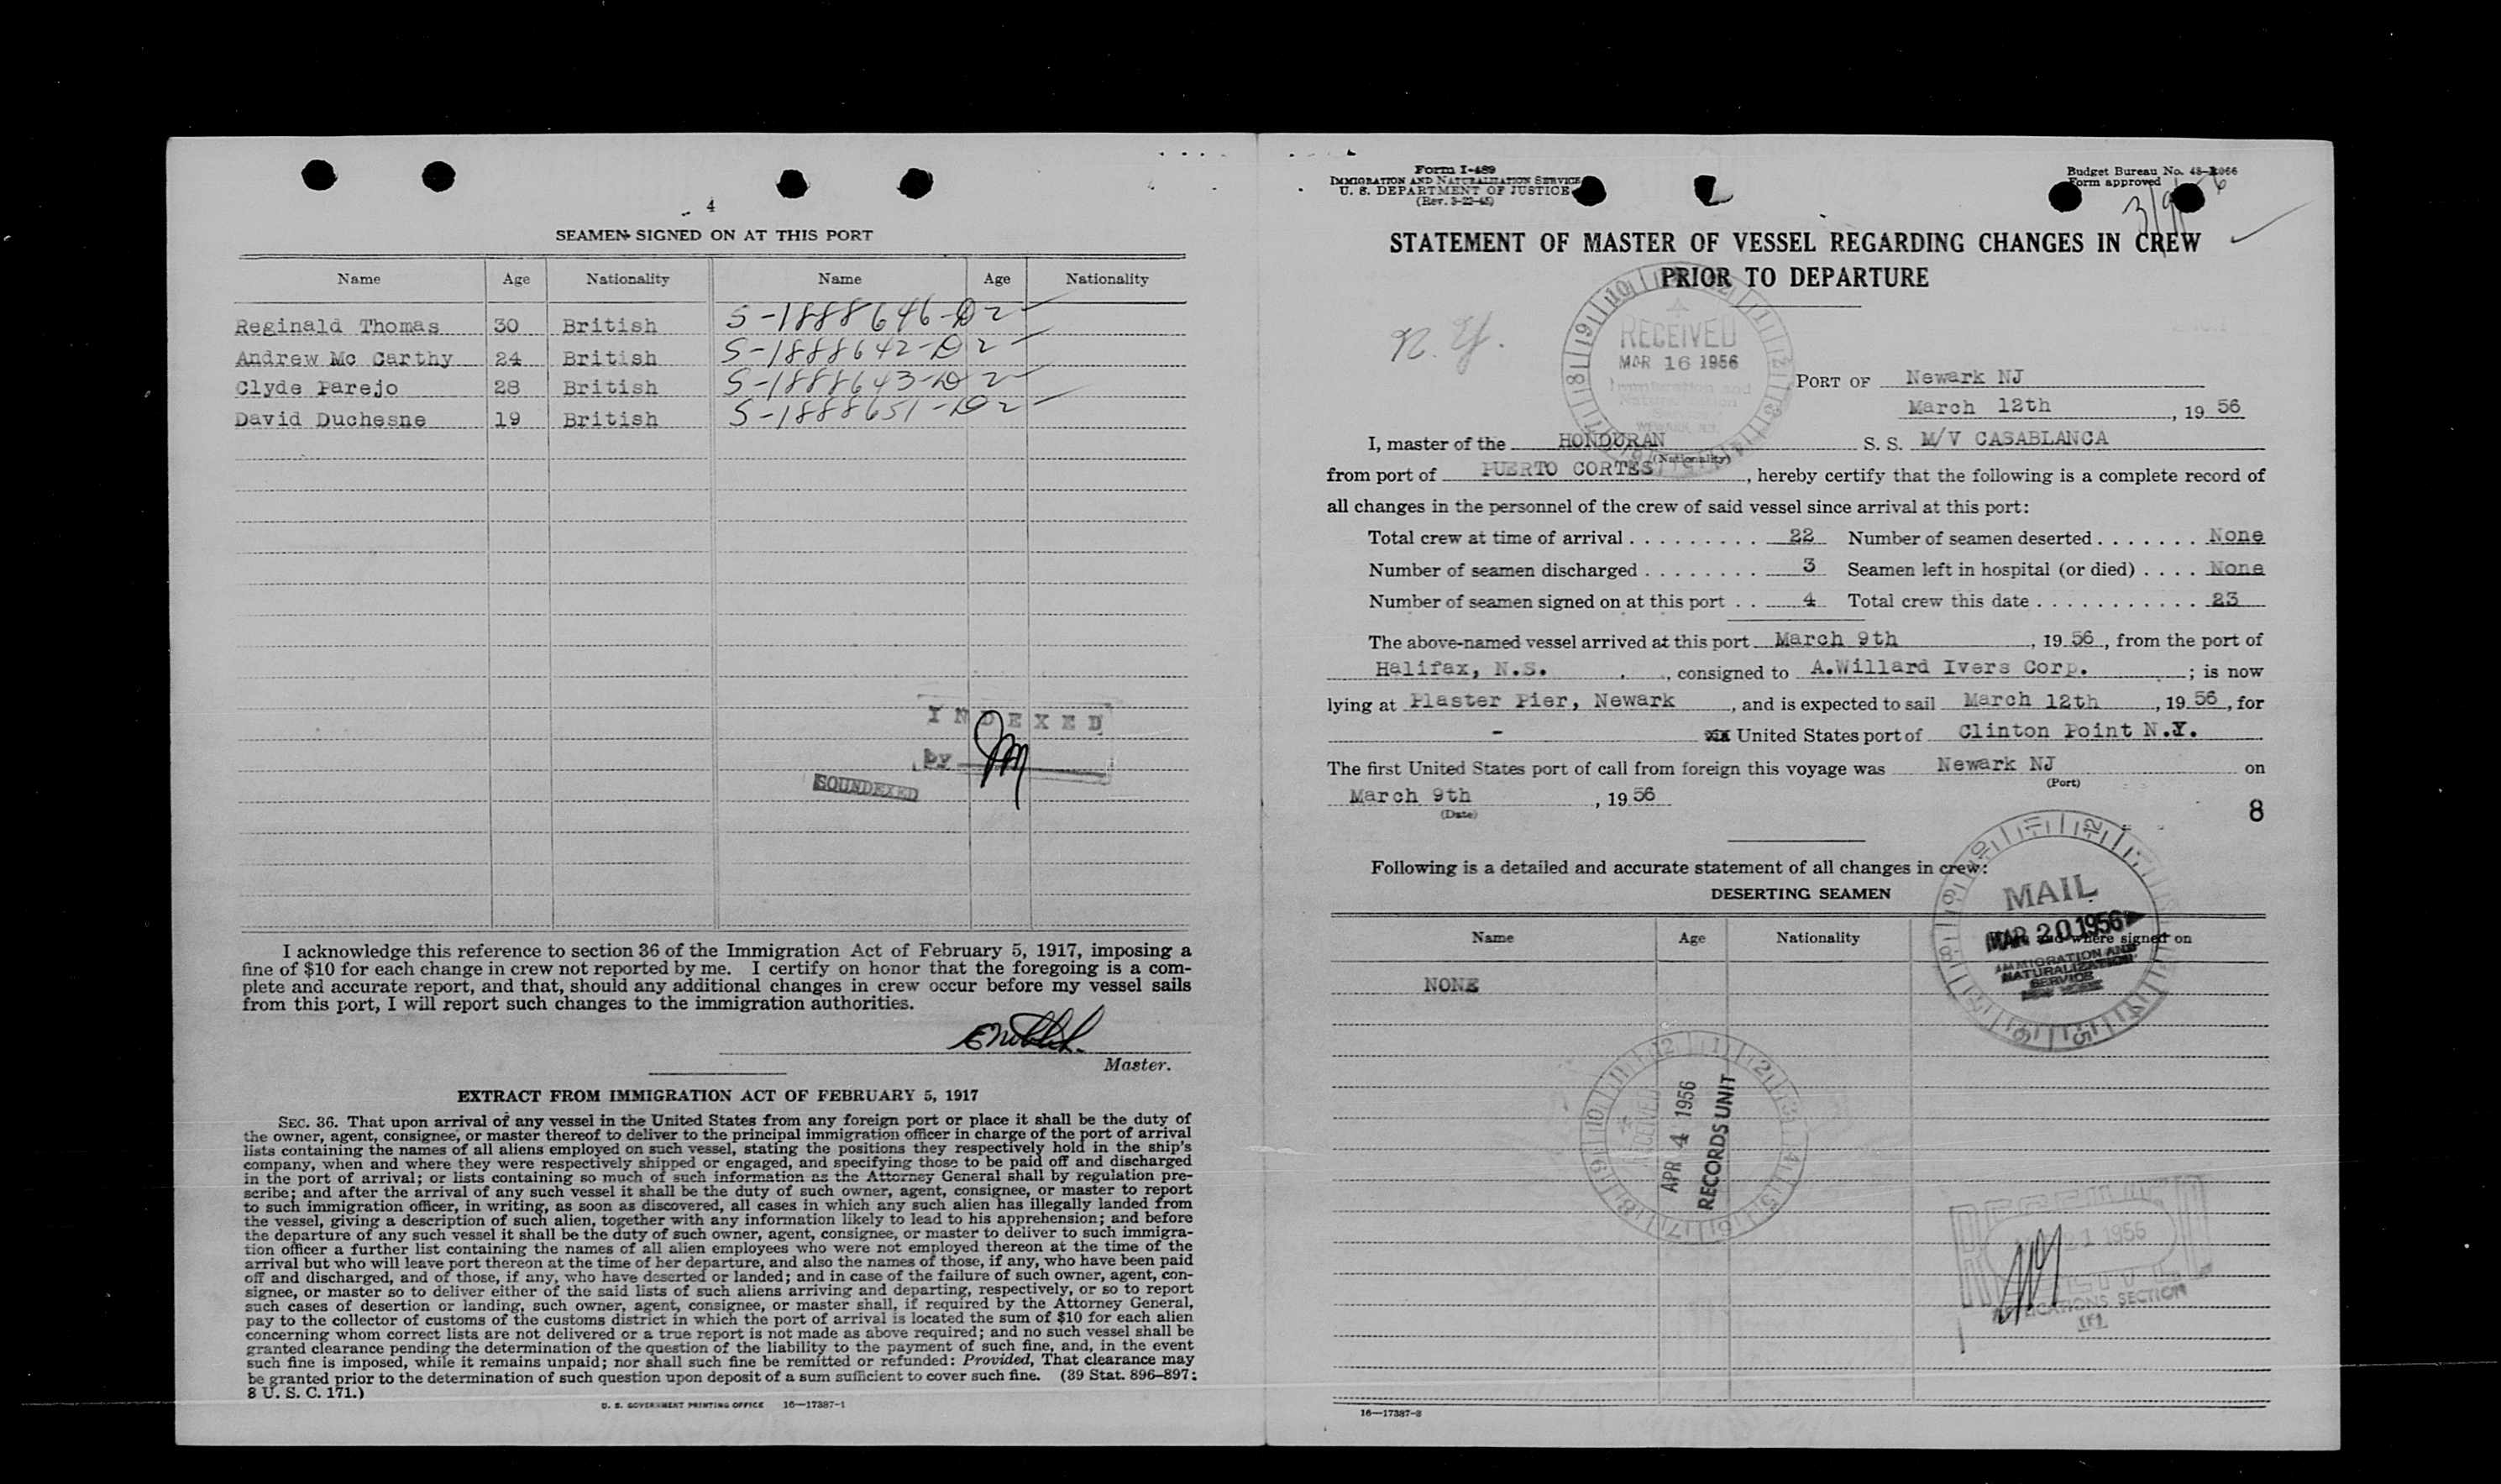 4
SEAMEN SIGNED ON AT THIS PORT
Name Age Nationality Name Age Nationality
Reginald Thomas 30 British S-1888646-D2
Andrew Mc Carthy 24 British S-1888642-D2
Clyde Parejo 28 British S-1888643-D2
David Duchesne 19 British S-1888651-D2
INDEXED
by
SOUNDEXED
I acknowledge this reference to section 36 of the Immigration Act of February 5, 1917, imposing a
fine of $10 for each change in crew not reported by me. I certify on honor that the foregoing is a com-
plete and accurate report, and that, should any additional changes in crew occur before my vessel sails
from this port, I will report such changes to the immigration authorities.
Master.
EXTRACT FROM IMMIGRATION ACT OF FEBRUARY 5, 1917
SEC. 36. That upon arrival of any vessel in the United States from any foreign port or place it shall be the duty of
the owner, agent, consignee, or master thereof to deliver to the principal immigration officer in charge of the port of arrival
lists containing the names of all aliens employed on such vessel, stating the positions they respectively hold in the ship's
company, when and where they were respectively shipped or engaged, and specifying those to be paid off and discharged
in the port of arrival; or lists containing so much of such information as the Attorney General shall by regulation pre-
scribe; and after the arrival of any such vessel it shall be the duty of such owner, agent, consignee, or master to report
to such immigration officer, in writing, as soon as discovered, all cases in which any such alien has illegally landed from
the vessel, giving a description of such alien, together with any information likely to lead to his apprehension; and before
the departure of any such vessel it shall be the duty of such owner, agent, consignee, or master to deliver to such immigra-
tion officer a further list containing the names of all alien employees who were not employed thereon at the time of the
arrival but who will leave port thereon at the time of her departure, and also the names of those, if any, who have been paid
off and discharged, and of those, if any, who have deserted or landed; and in case of the failure of such owner, agent, con-
signee, or master so to deliver either of the said lists of such aliens arriving and departing, respectively, or so to report
such cases of desertion or landing, such owner, agent, consignee, or master shall, if required by the Attorney General,
pay to the collector of customs of the customs district in which the port of arrival is located the sum of $10 for each alien
concerning whom correct lists are not delivered or a true report is not made as above required; and no such vessel shall be
granted clearance pending the determination of the question of the liability to the payment of such fine, and, in the event
such fine is imposed, while it remains unpaid; nor shall such fine be remitted or refunded: Provided, That clearance may
be granted prior to the determination of such question upon deposit of a sum sufficient to cover such fine. (39 Stat. 896-897;
8 U. S. C. 171.)
U. S. GOVERNMENT PRINTING OFFICE 16—17387-1
Form I-489
IMMIGRATION AND NATURALIZATION SERVICE
U. S. DEPARTMENT OF JUSTICE
(Rev. 3-22-45)
Budget Bureau No.
Form approved
STATEMENT OF MASTER OF VESSEL REGARDING CHANGES IN CREW
PRIOR TO DEPARTURE
N.Y.
RECEIVED
MAR 16 1956
Immigration and
Naturalization
PORT OF Newark NJ
March 12th, 19 56
I, master of the HONDURAN S. S. M/V CASABLANCA
(Nationality)
from port of PUERTO CORTES, hereby certify that the following is a complete record of
all changes in the personnel of the crew of said vessel since arrival at this port:
Total crew at time of arrival 22 Number of seamen deserted None
Number of seamen discharged 3 Seamen left in hospital (or died) None
Number of seamen signed on at this port 4 Total crew this date 23
The above-named vessel arrived at this port March 9th, 19 56, from the port of
Halifax, N.S., consigned to A.Willard Ivers Corp.; is now
lying at Plaster Pier, Newark, and is expected to sail March 12th, 19 56, for
- United States port of Clinton Point N.Y.
The first United States port of call from foreign this voyage was Newark NJ on
(Port)
March 9th, 19 56
(Date)
8
Following is a detailed and accurate statement of all changes in crew:
DESERTING SEAMEN
Name Age Nationality and where signed on
NONE
MAIL
MAR 20 1956
IMMIGRATION AND
NATURALIZATION
SERVICE
NEW YORK
RECEIVED
APR 4 1956
RECORDS UNIT
1956
SECTION
16—17387-3